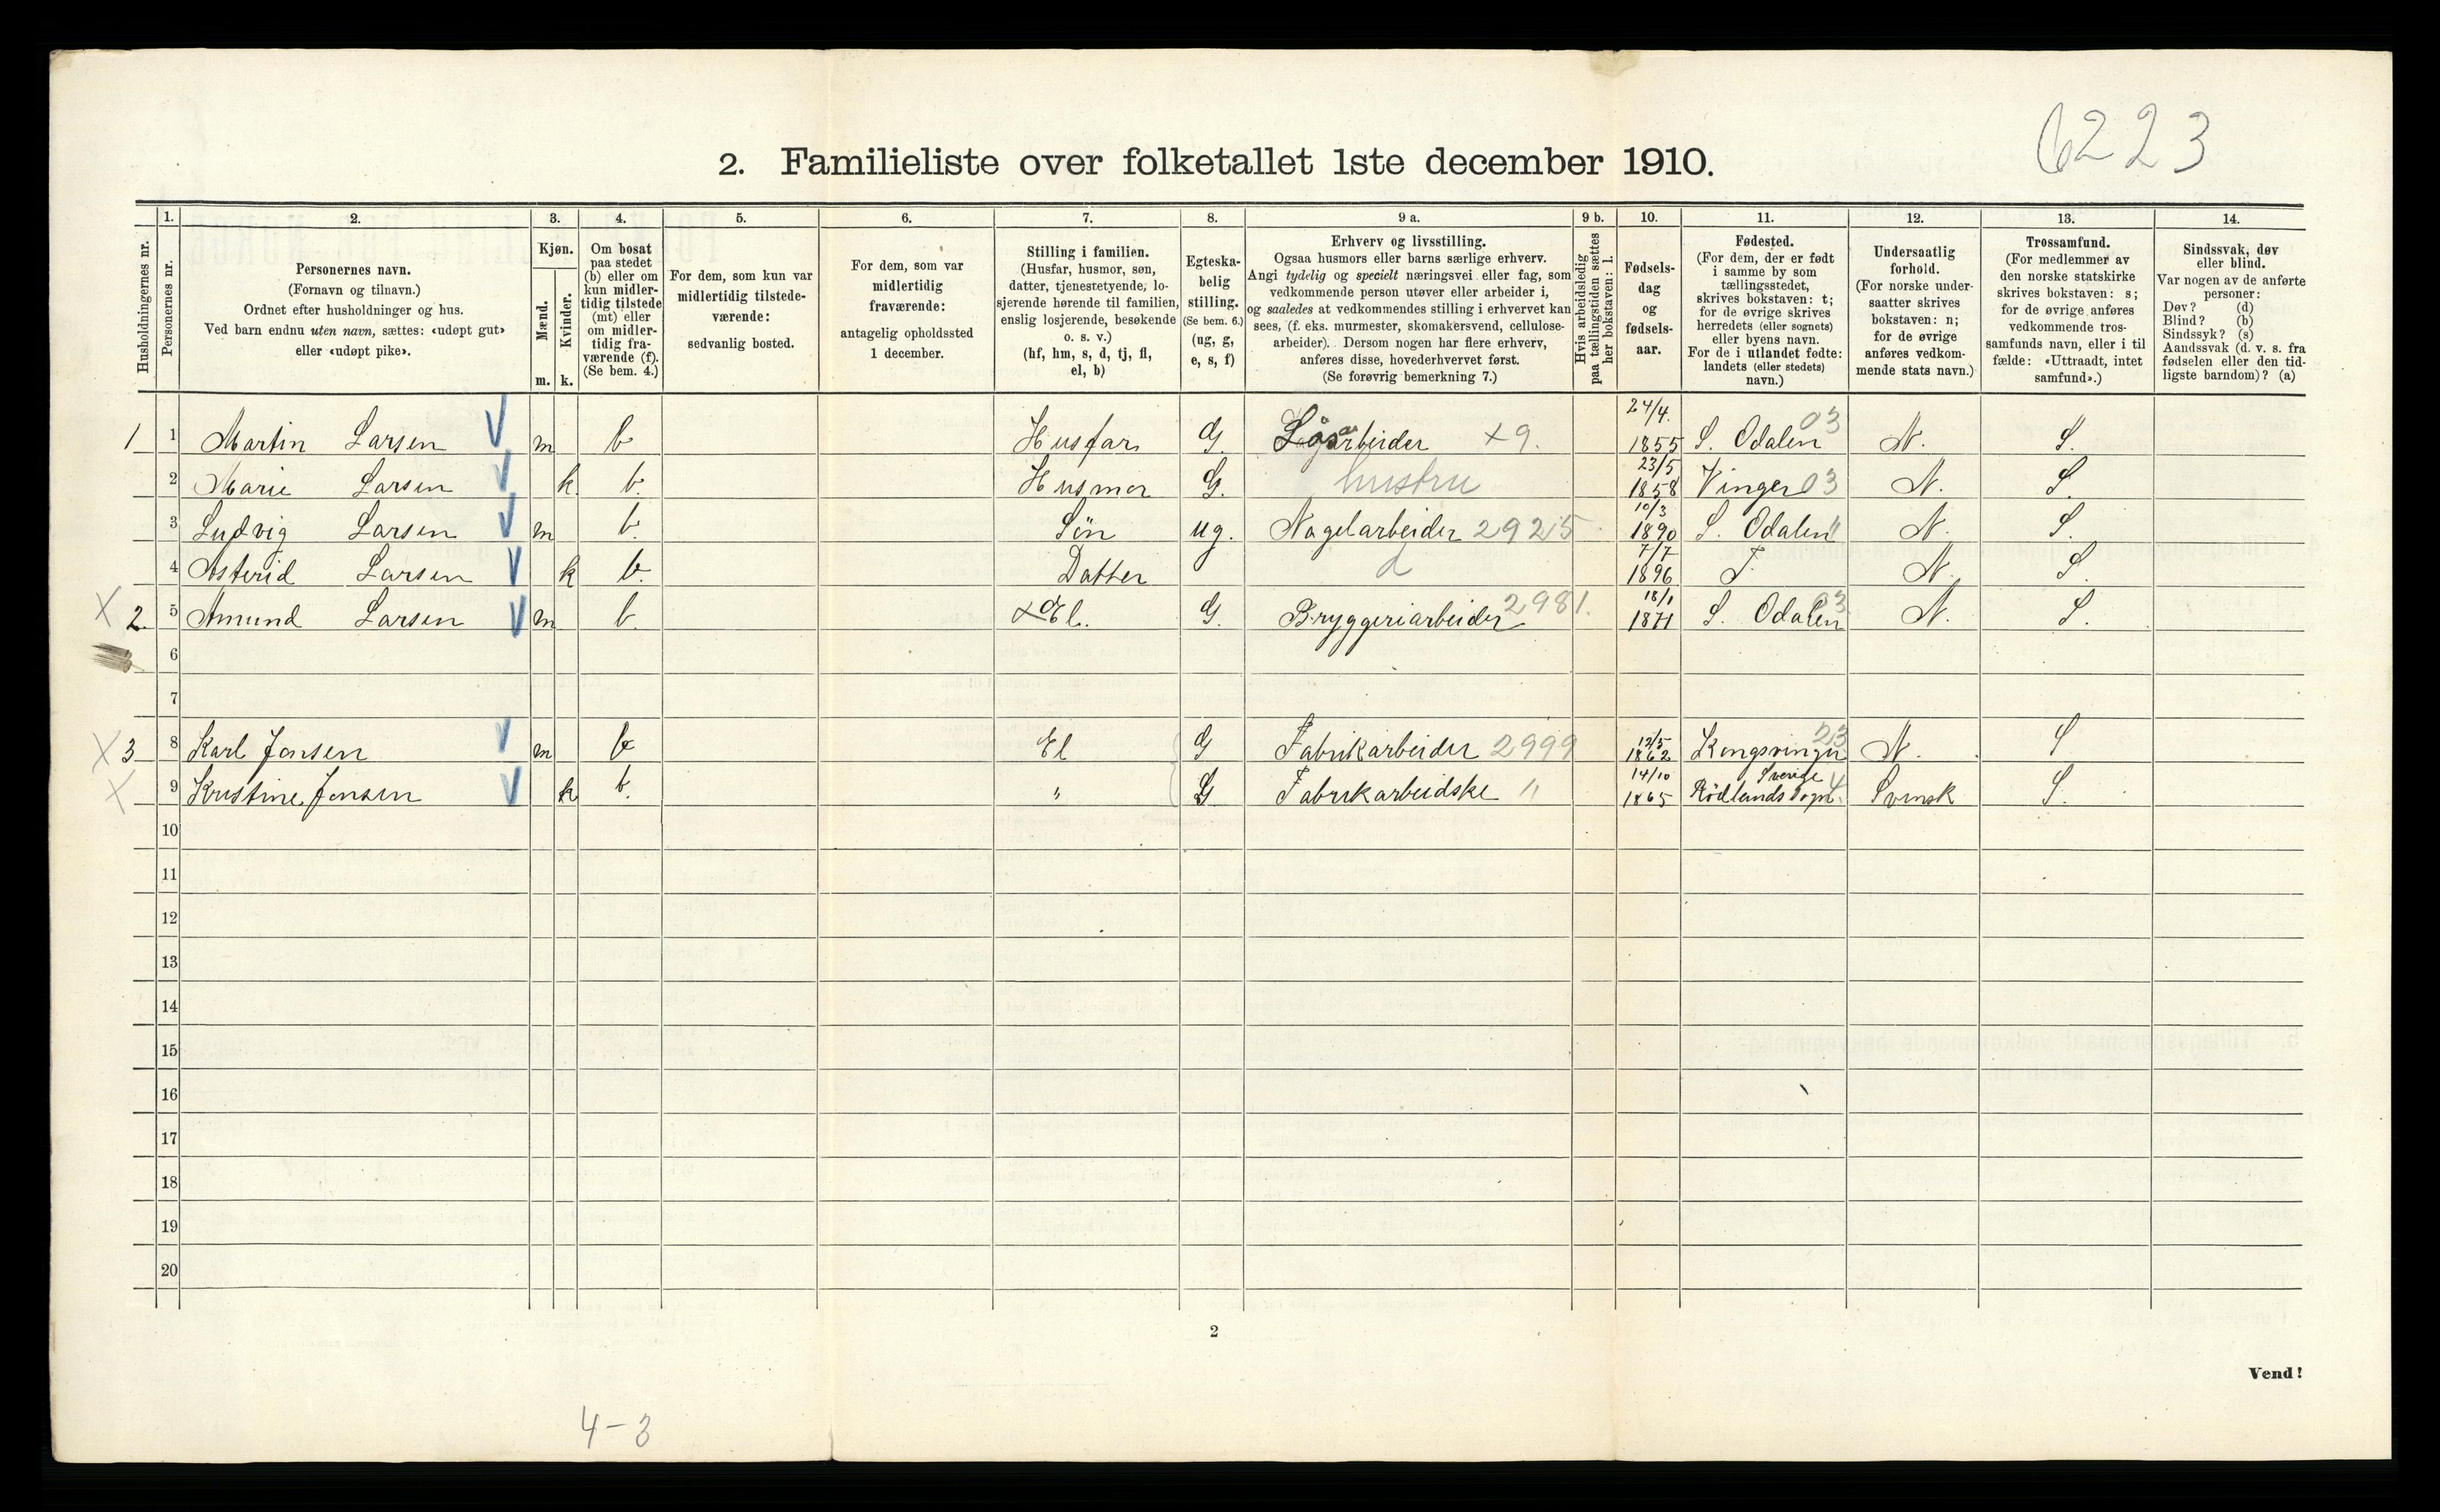 6223
2. Familieliste over folketallet 1ste december 1910.
1. 2. 3. 4. 5. 6. 7. 8. 9 a. 9 b. 10. 11. 12. 13. 14.
Husholdningernes nr.
Personernes nr.
Personernes navn.
(Fornavn og tilnavn.)
Ordnet efter husholdninger og hus.
Ved barn endnu uten navn, sættes: «udøpt gut»
eller «udøpt pike».
Kjøn.
Mænd.
Kvinder.
m. k.
Om bosat
paa stedet
(b) eller om
kun midler-
tidig tilstede
(mt) eller
om midler-
tidig fra-
værende (f).
(Se bem. 4.)
For dem, som kun var
midlertidig tilstede-
værende:
sedvanlig bosted.
For dem, som var
midlertidig
fraværende:
antagelig opholdssted
1 december.
Stilling i familien.
(Husfar, husmor, søn,
datter, tjenestetyende, lo-
sjerende hørende til familien,
enslig losjerende, besøkende
o. s. v.)
(hf, hm, s, d, tj, fl,
el, b)
Egteska-
belig
stilling.
(Se bem. 6.)
(ug, g,
e, s, f)
Erhverv og livsstilling.
Ogsaa husmors eller barns særlige erhverv.
Angi tydelig og specielt næringsvei eller fag, som
vedkommende person utøver eller arbeider i,
og saaledes at vedkommendes stilling i erhvervet kan
sees, (f. eks. murmester, skomakersvend, cellulose-
arbeider). Dersom nogen har flere erhverv,
anføres disse, hovederhvervet først.
(Se forøvrig bemerkning 7.)
Hvis arbeidsledig
paa tællingstiden sættes
her bokstaven: l.
Fødsels-
dag
og
fødsels-
aar.
Fødested.
(For dem, der er født
i samme by som
tællingsstedet,
skrives bokstaven: t;
for de øvrige skrives
herredets (eller sognets)
eller byens navn.
For de i utlandet fødte:
landets (eller stedets)
navn.)
Undersaatlig
forhold.
(For norske under-
saatter skrives
bokstaven: n;
for de øvrige
anføres vedkom-
mende stats navn.)
Trossamfund.
(For medlemmer av
den norske statskirke
skrives bokstaven: s;
for de øvrige anføres
vedkommende tros-
samfunds navn, eller i til
fælde: «Uttraadt, intet
samfund».)
Sindssvak, døv
eller blind.
Var nogen av de anførte
personer:
Døv? (d)
Blind? (b)
Sindssyk? (s)
Aandssvak (d. v. s. fra
fødselen eller den tid-
ligste barndom)? (a)
1 1 Martin Larsen V m b Husfar G. arbeider x9. 24/4. 1855 S. Odalen 03 N. S.
2 Marie Larsen V k b. Husmor G. hustru 23/5 1858 Vinger 03 N. S.
3 Ludvig Larsen V m b. Sön ug. Nagelarbeider 2925 10/3 1890 S. Odalen " N. S.
4 Asterid Larsen V k b. Datter d 7/7 1896 T N. S.
X 2. 5 Amund Larsen V m b. x El. G. Bryggeriarbeider 2981. 18/1 1871 S. Odalen 03 N. S.
6
7
X 3 8 Karl Jensen V m b El G Fabrikarbeider 2999 12/5 1862 Kongsvinger 23 N. S
X 9 Kristine Jensen V k b. " G Fabrikarbeidske " 14/10 1865 Sverige Rödlands Sogn. Svensk S.
10
11
12
13
14
15
16
17
18
19
20
2
Vend!
4-3